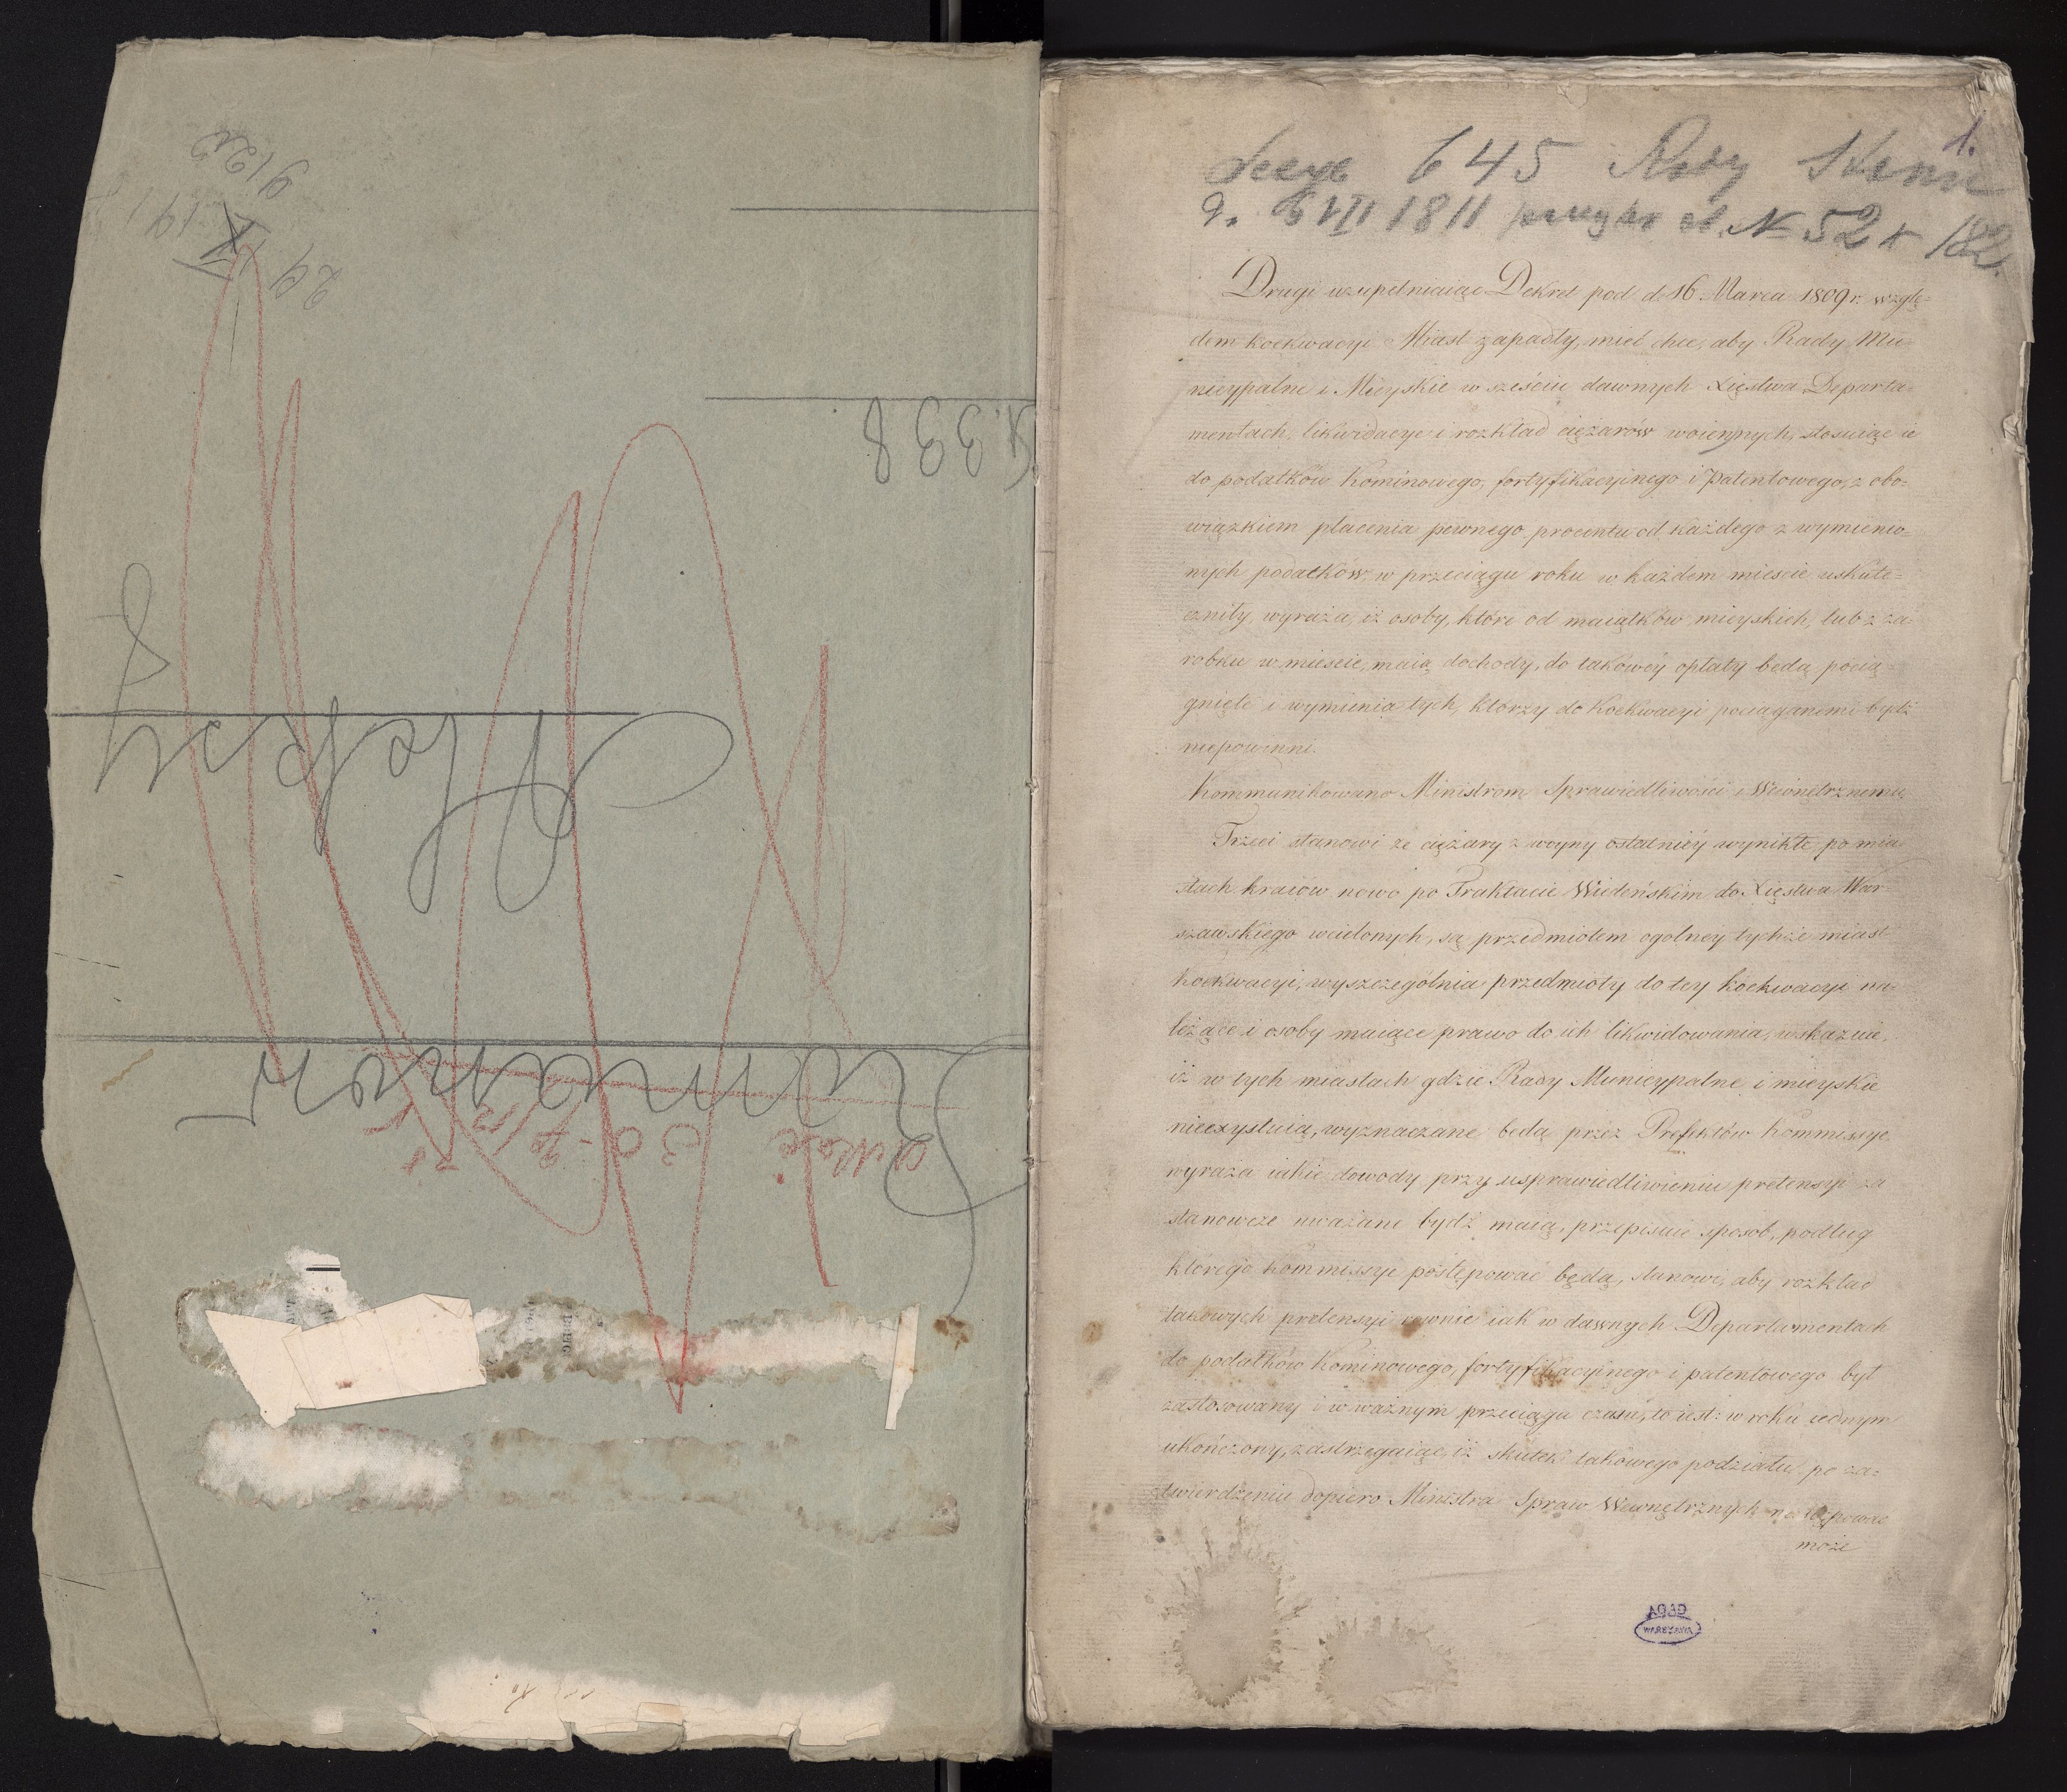 K. 338
Aleksy
Romanow
30
29
1.
Sesye 645 Rady Stanu
d. 6 VII 1811 № 52 k 182.
Drugi uzupełniaiąc Dekret pod d. 16 Marca 1809 r. wzglę=
dem koekwacyi Miast zapadły, mieć chce, aby Rady Mu=
nicypalne i Mieyskie w sześciu dawnych Xięstwa Departa=
mentach, likwidacye i rozkład ciężarów woiennych, stosuiąc ie
do podatków Kominowego, fortyfikacyinego i Patentowego, z obo=
wiązkiem płacenia pewnego procentu od każdego z wymienio=
nych podatków, w przeciągu roku w każdem mieście uskute=
czniły, wyraża, iż osoby, które od maiątków mieyskich, lub z za=
robku w mieście, maią dochody, do takowéy opłaty będą pocią=
gnięte i wymienia tych, którzy do Koekwacyi pociąganemi bydź
niepowinni.
Kommunikowano Ministrom Sprawiedliwości i Wewnętrznemu.
Trzeci stanowi że ciężary z woyny ostatniéy wynikłe po mia=
stach kraiów nowo po Traktacie Wiedeńskim do Xięstwa War=
szawskiego wcielonych, są przedmiotem ogólney tychże miast
koekwacyi, wyszczególnia przedmioty do tey koekwacyi na=
leżące i osoby maiące prawo do ich likwidowania, wskazuie,
iż w tych miastach gdzie Rady Municypalne i mieyskie
nieexystuią, wyznaczane będą przez Prefektów Kommissye
wyraża iakie dowody przy usprawiedliwieniu pretensyi za
stanowcze uważane bydź maią, przepisuie sposób, podług
którego Kommissye postępować będą, stanowi, aby rozkład
takowych pretensyi równie iak w dawnych Departamentach
do podatków Kominowego, fortyfikacyinego i patentowego był
zastosowany i w ważnym przeciągu czasu, to iest: w roku iednym
ukończony, zastrzegaiąc, iż skutek takowego podziału po za=
twierdzeniu dopiero Ministra Spraw Wewnętrznych następować
może
AGAD
WARSZAWA